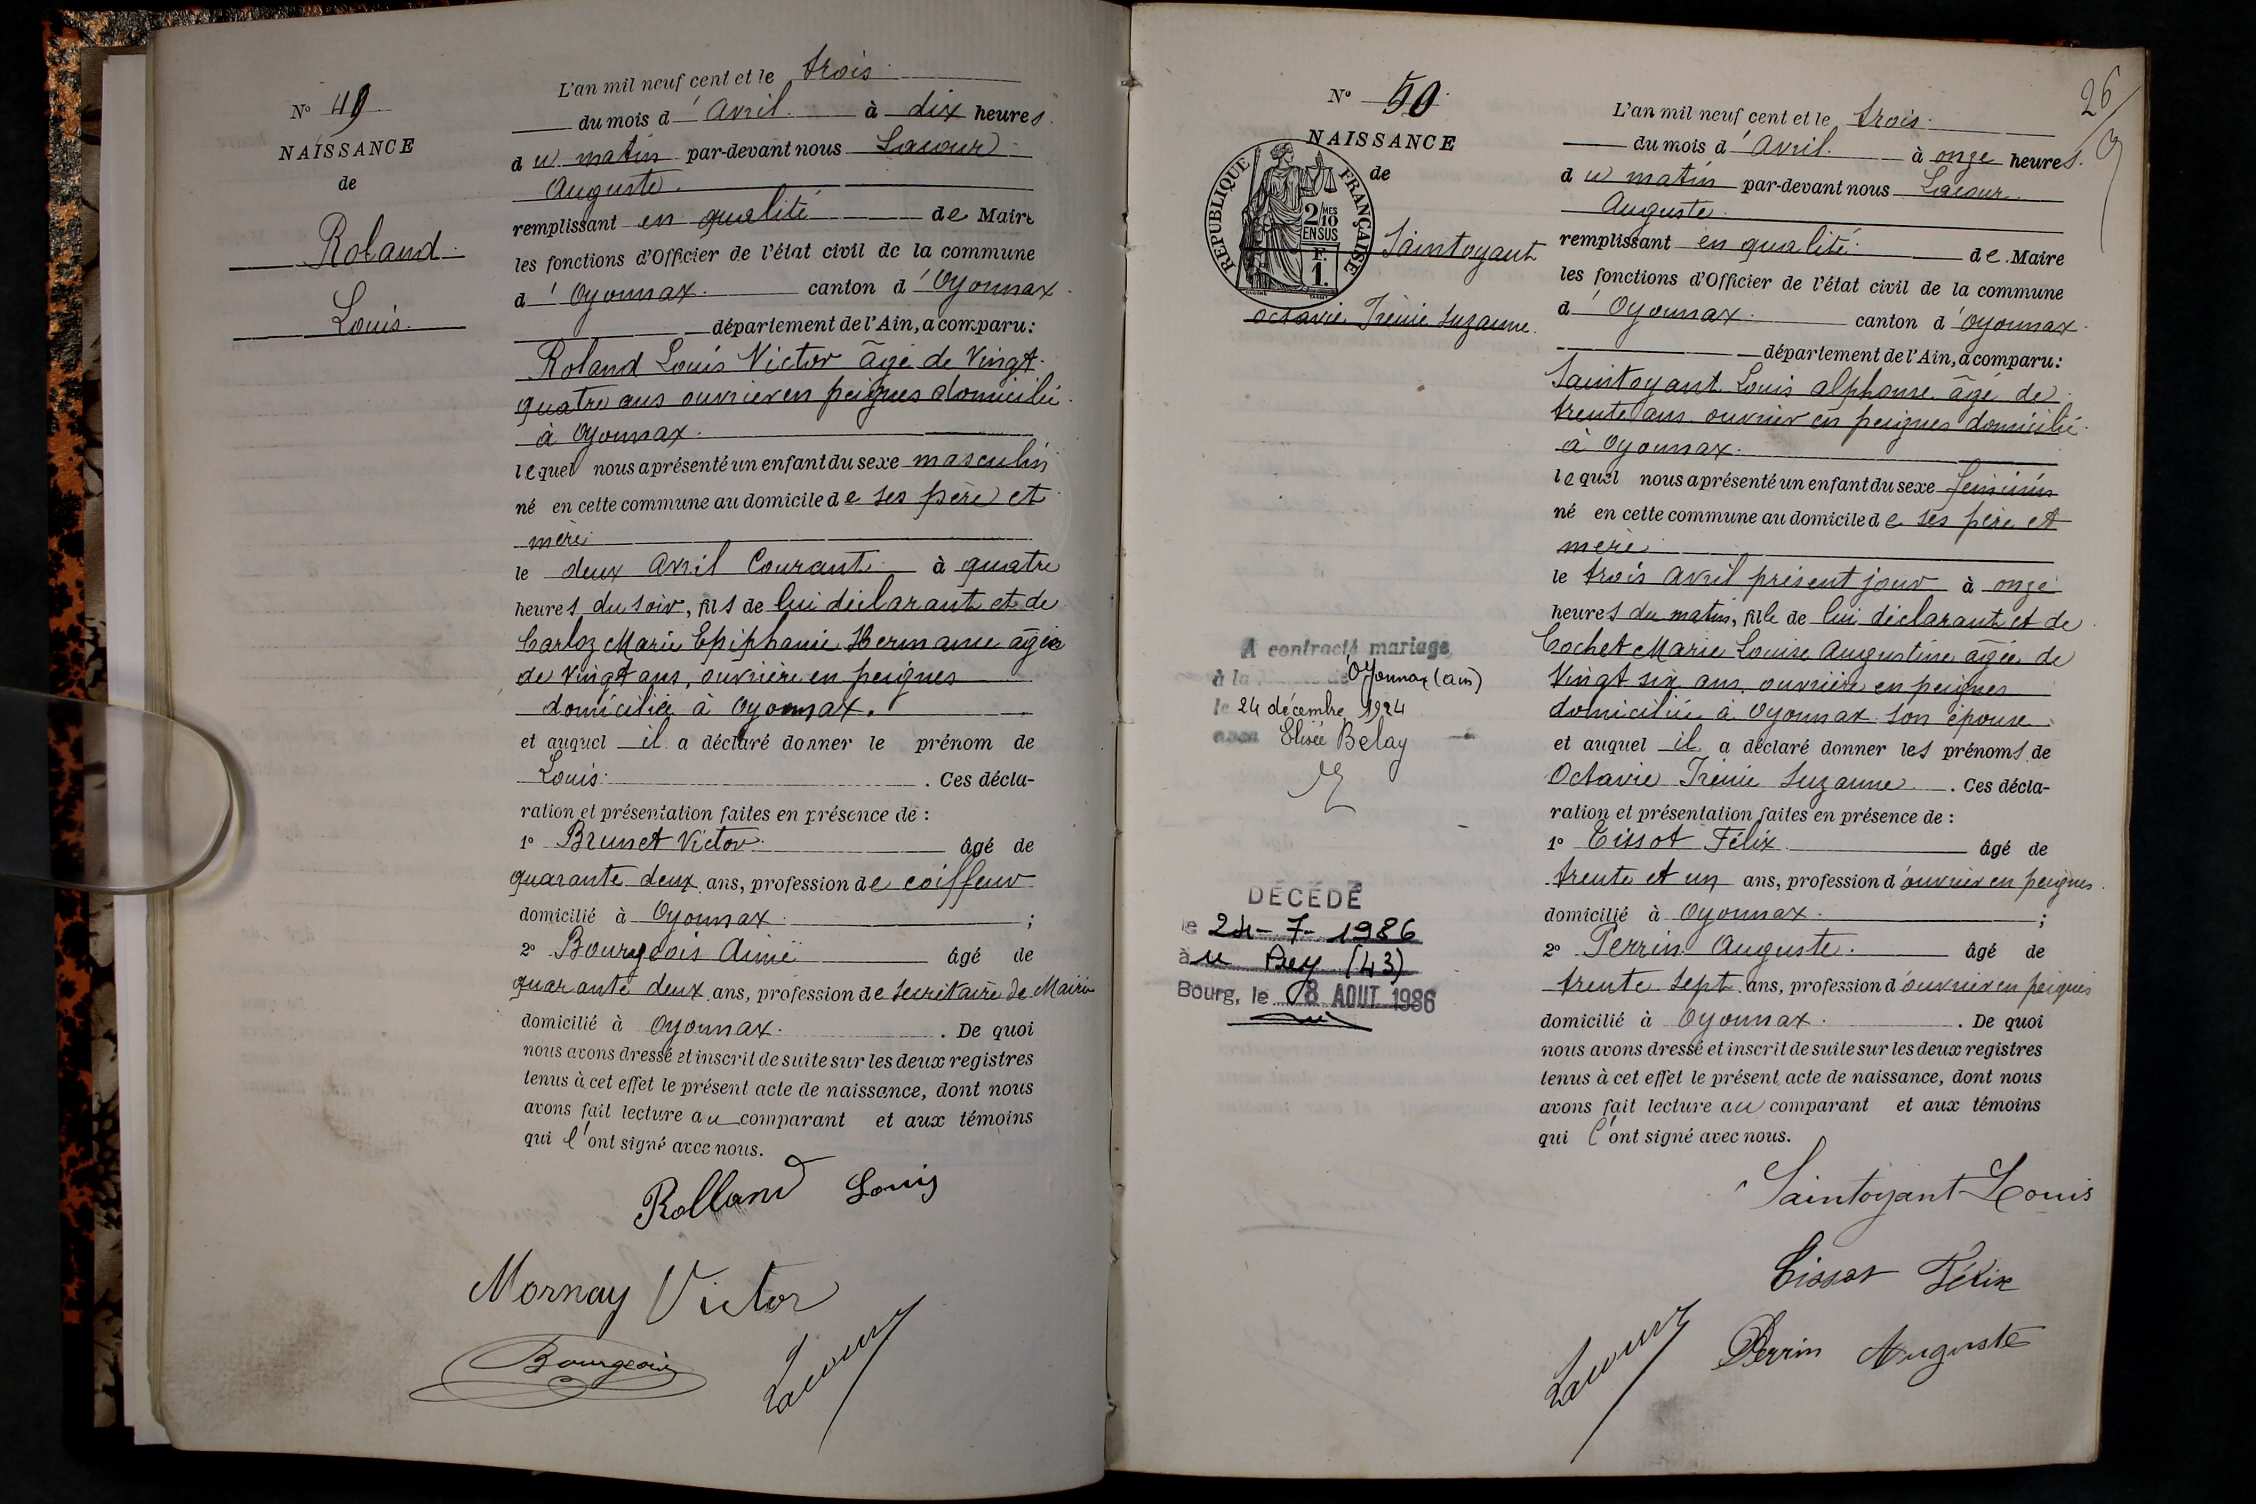 N° 49
NAISSANCE
de
Roland
Louis
L'an mil neuf cent et le trois
du mois d'Avril à dix heures
du matin par-devant nous Lacour
Auguste
remplissant en qualité de Maire
les fonctions d'Officier de l'état civil de la commune
d'Oyonnax canton d'Oyonnax
département de l'Ain, a comparu:
Roland Louis Victor âgé de Vingt
quatre ans ouvrier en peignes domicilié
à Oyonnax
lequel nous a présenté un enfant du sexe masculin
né en cette commune au domicile de ses père et
mère
le deux Avril Courant à quatre
heures du soir, fils de lui déclarant et de
Carloz Marie Epiphanie Hermance agée
de Vingt ans, ouvrière en peignes
domiciliée à Oyonnax.
et auquel il a déclaré donner le prénom de
Louis . Ces décla-
ration et présentation faites en présence de :
1° Brunet Victor âgé de
quarante deux ans, profession de coiffeur
domicilié à Oyonnax ;
2° Bourgeois Aimé âgé de
quarante deux ans, profession de secrétaire de Mairie
domicilié à Oyonnax . De quoi
nous avons dressé et inscrit de suite sur les deux registres
tenus à cet effet le présent acte de naissance, dont nous
avons fait lecture au comparant et aux témoins
qui l'ont signé avec nous.
Rolland Louis
Mornay Victor
Bourgeois
Lacour
26
N° 50
NAISSANCE
de
RÉPUBLIQUE FRANÇAISE
2/10 MES
EN SUS
1 F.
Saintoyant
Octavie Irénie Suzanne
A contracté mariage
à la de Oyonnax (ain)
le 24 décembre 1924
avec Elisée Belay
DÉCÉDÉ
le 24-7-1986
à Puy (43)
Bourg, le 8 AOUT 1986
L'an mil neuf cent et le trois
du mois d'Avril à onze heures.
du matin par-devant nous Lacour
Auguste
remplissant en qualité de Maire
les fonctions d'Officier de l'état civil de la commune
d'Oyonnax canton d'Oyonnax
département de l'Ain, a comparu:
Saintoyant Louis alphonse âgé de
trente ans ouvrier en peignes domicilié
à Oyonnax
lequel nous a présenté un enfant du sexe féminin
né en cette commune au domicile de ses père et
mère
le trois Avril présent jour à onze
heures du matin, fille de lui déclarant et de
Cochet Marie Louise Augustine agée de
Vingt six ans, ouvrière en peignes
domiciliée à Oyonnax son épouse
et auquel il a déclaré donner les prénoms de
Octavie Irénie Suzanne . Ces décla-
ration et présentation faites en présence de :
1° Tissot Félix âgé de
trente et un ans, profession d'ouvrier en peignes
domicilié à Oyonnax ;
2° Perrin Auguste âgé de
trente sept ans, profession d'ouvrier en peignes
domicilié à Oyonnax . De quoi
nous avons dressé et inscrit de suite sur les deux registres
tenus à cet effet le présent acte de naissance, dont nous
avons fait lecture au comparant et aux témoins
qui l'ont signé avec nous.
Saintoyant Louis
Tissot Félix
Lacour
Perrin Auguste